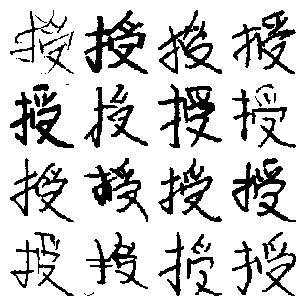 授授授授
授授授授
授授授授
授授授授